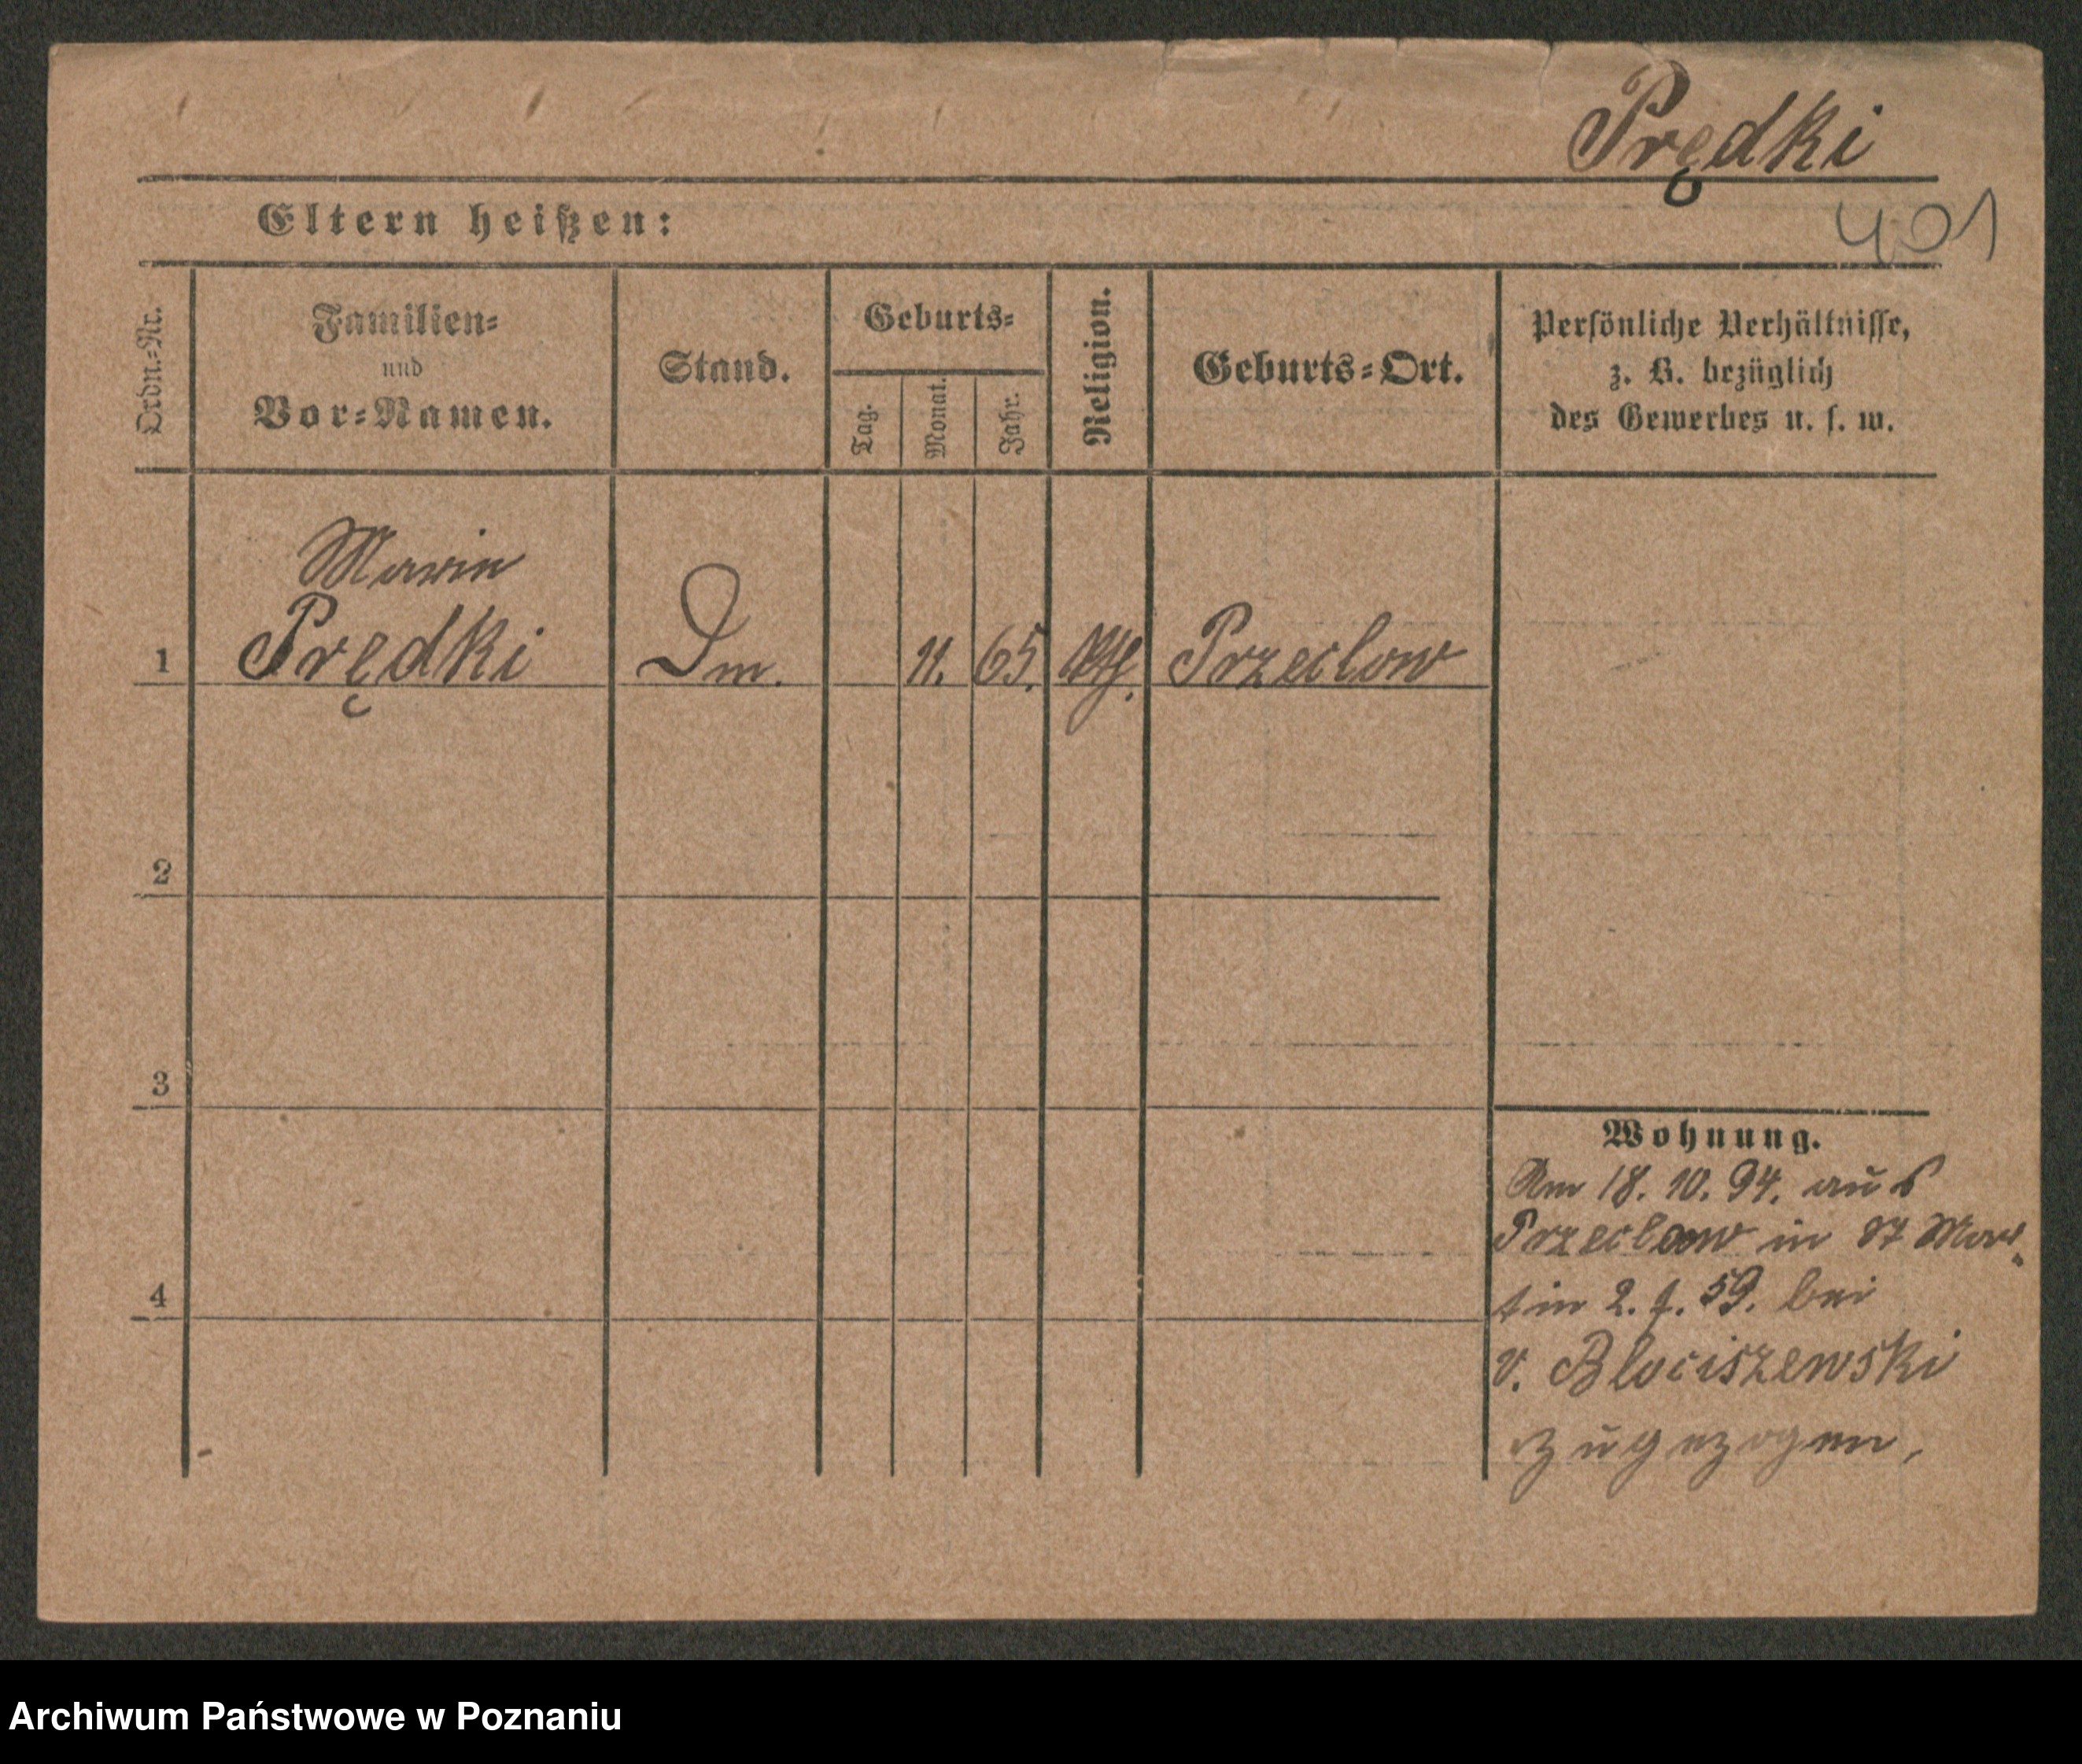 Prędki
401
Eltern heißen:
Ordn.=Nr.
Familien=
und
Vor=Namen.
Stand.
Geburts=
Tag.
Monat.
Jahr.
Religion.
Geburts=Ort.
Persönliche Verhältnisse,
z. B. bezüglich
des Gewerbes u. s. w.
Marie
1 Prędki Dm. 11. 65. kth. Przeclow
2
3
4
Wohnung.
Am 18. 10. 94. aus
Przeclow in St Mar=
tin 2. f. 59. bei
v. Blociszewski
zugezogen,
Archiwum Państwowe w Poznaniu